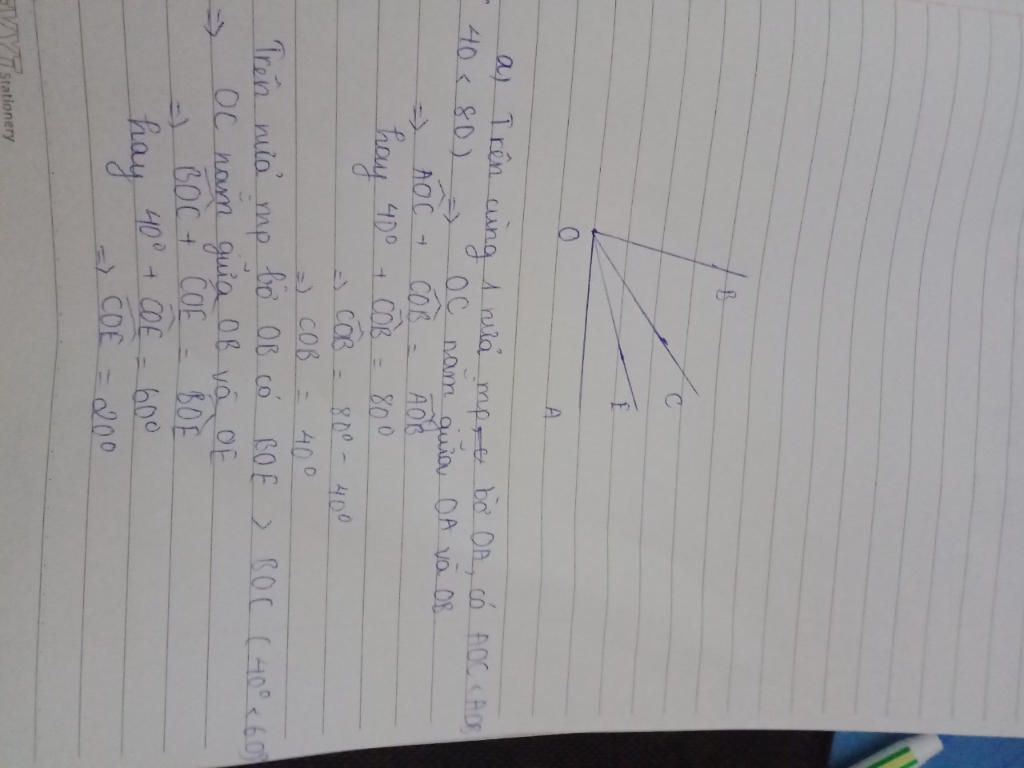 B
O
C
E
A
a) Trên cùng 1 nửa mp bờ OA, có AOC < AOB
40 < 80) => OC nằm giữa OA và OB
=> AOC + COB = AOB
hay 40° + COB = 80°
=> COB = 80° - 40°
=> COB = 40°
Trên nửa mp bờ OB có BOE > BOC (40° < 60°
=> OC nằm giữa OB và OE
=> BOC + COE = BOE
hay 40° + COE = 60°
=> COE = 20°
stationery